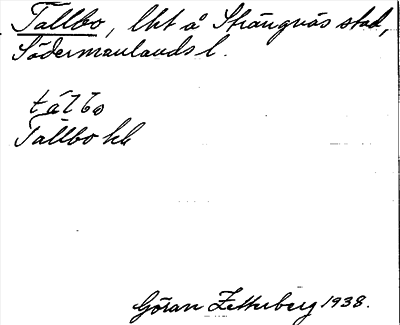 Tallbo, lht å Strängnäs stad,
Södermanlands l.
tálbo
Tallbo hk
Göran Zetterberg 1938.